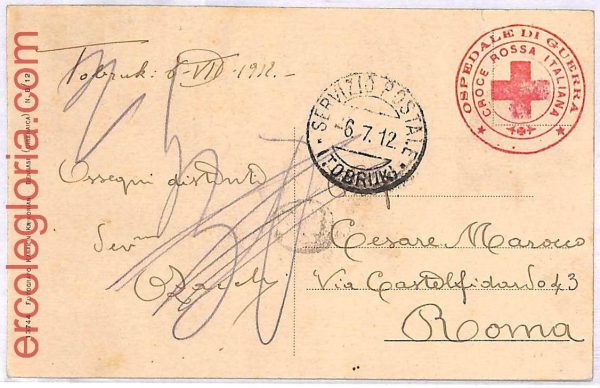 Tobruk: 6-VII-1912.-
Ossequi distinti
Dev
OSPEDALE DI GUERRA
CROCE ROSSA ITALIANA
SERVIZIO POSTALE
-6.7.12
(TOBRUK)
Cesare Marocco
Via Castelfidardo 43
Roma
ercolegloria.com